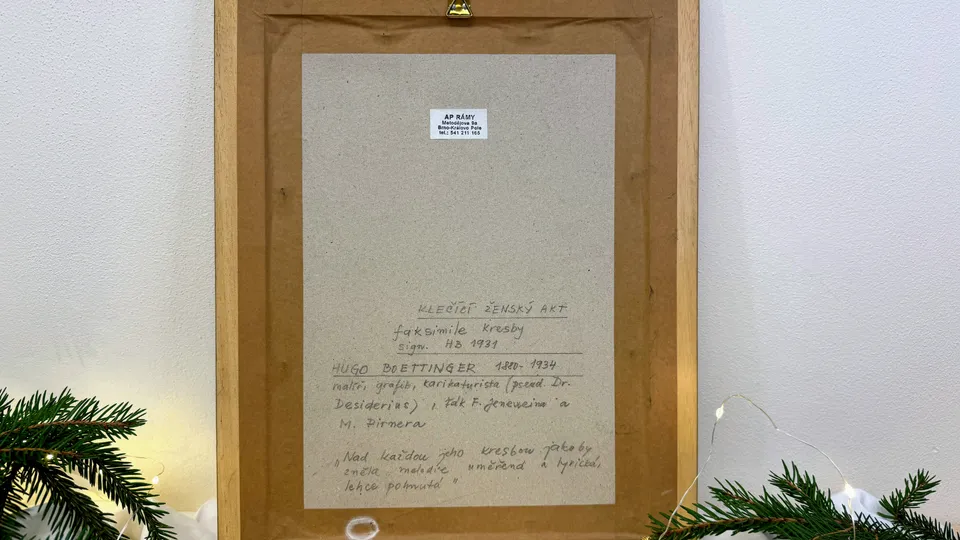 AP RÁMY
Metodějova 9a
Brno-Královo Pole
tel.: 541 211 165
KLEČÍCÍ ŽENSKÝ AKT
faksimile kresby
sign. HB 1931
HUGO BOETTINGER 1880-1934
malíř, grafik, karikaturista (pseud. Dr.
Desiderius), žák F. Jeneweina a
M. Pirnera
"Nad každou jeho kresbou jakoby
zněla melodie uměřená a lyrická,
lehce pohnutá"